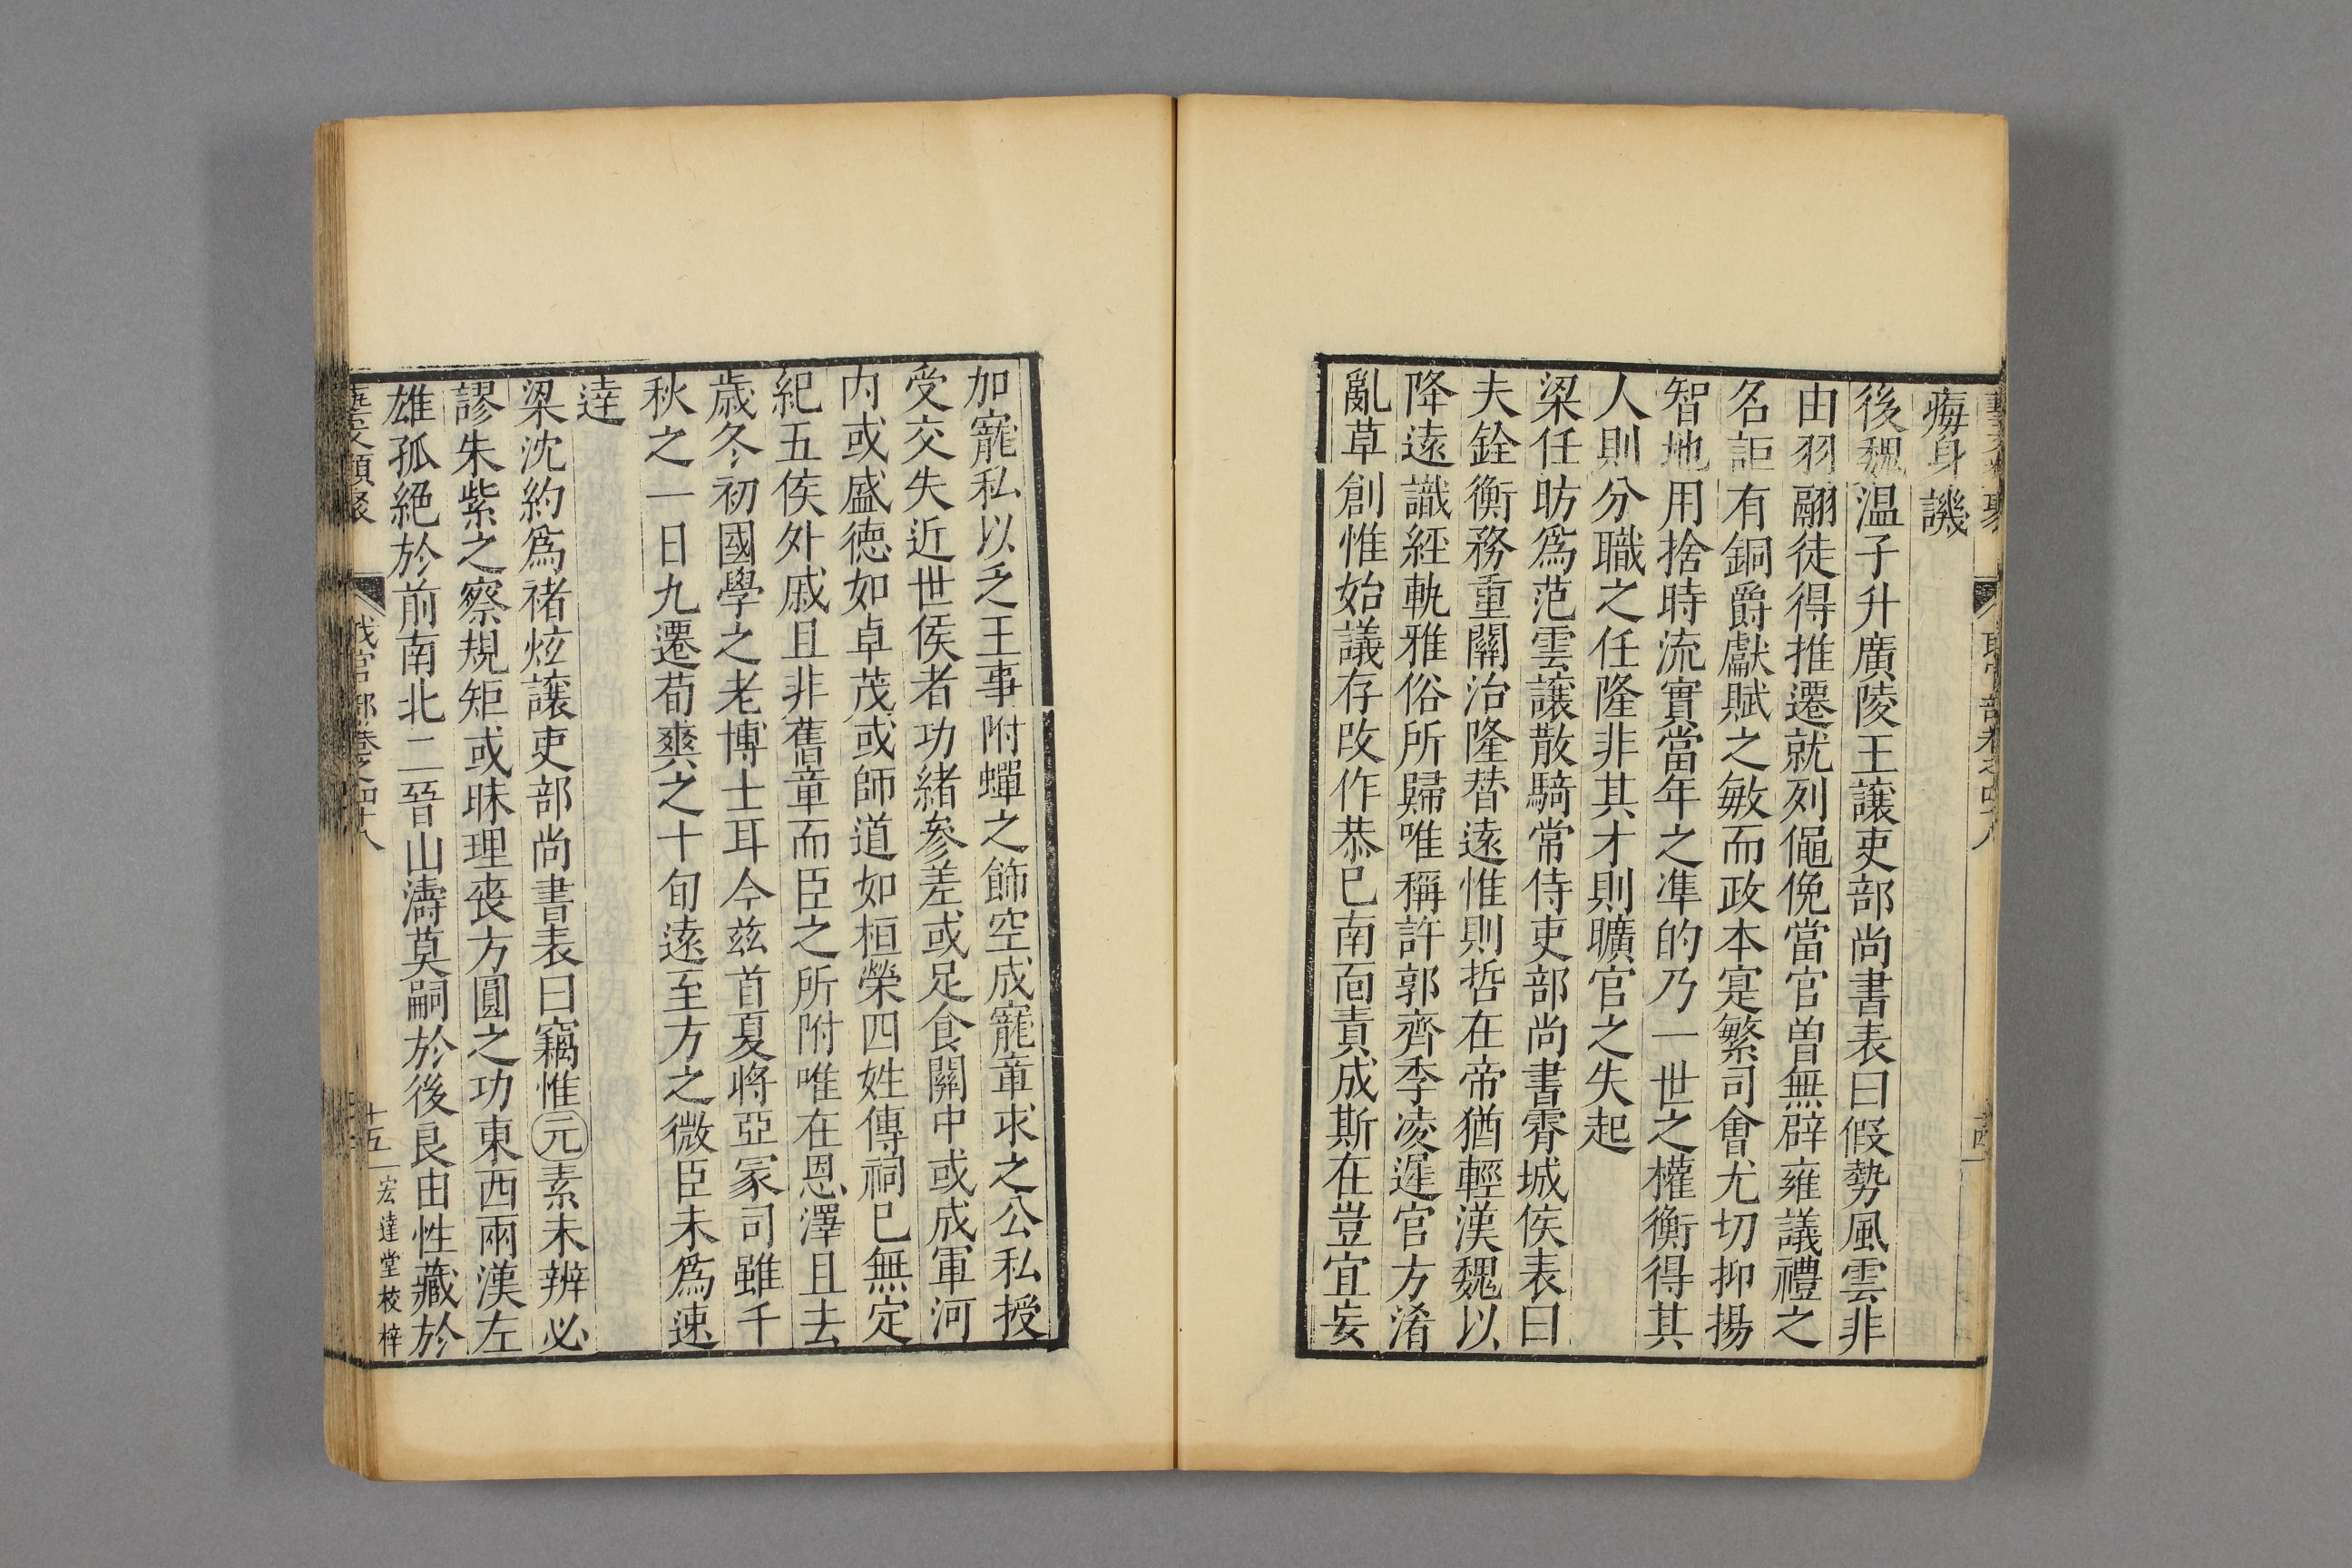 悔身譏
後魏温子升廣陵王讓吏部尚書表曰假勢風雲非
由羽翮徒得推遷就列僶俛當官曽無辟雍議禮之
名詎有銅爵獻賦之敏而政本寔繁司會尤切抑揚
智地用捨時流實當年之凖的乃一世之權衡得其
人則分職之任隆非其才則曠官之失起
梁任昉爲范雲讓散騎常侍吏部尚書霄城侯表曰
夫銓衡務重關治隆替遠惟則哲在帝猶輕漢魏以
降遠識經軌雅俗所歸唯稱許郭齊季凌遲官方淆
亂草創惟始議存改作恭已南面責成斯在豈宜妄
加寵私以乏王事附蟬之飾空成寵章求之公私授
受交失近世侯者功緒參差或足食關中或成軍河
内或盛德如卓茂或師道如桓榮四姓傳祠已無定
紀五侯外戚且非舊章而臣之所附唯在恩澤且去
歲冬初國學之老博士耳今兹首夏將亞冢司雖千
秋之一日九遷荀爽之十旬遠至方之微臣未爲速
達
梁沈約爲褚炫讓吏部尚書表曰竊惟元素未辨必
謬朱紫之察規矩或昧理喪方圓之功東西兩漢左
雄孤絕於前南北二晉山濤莫嗣於後良由性藏於
藝文類聚 職官部卷之四十八 十五 宏達堂校梓